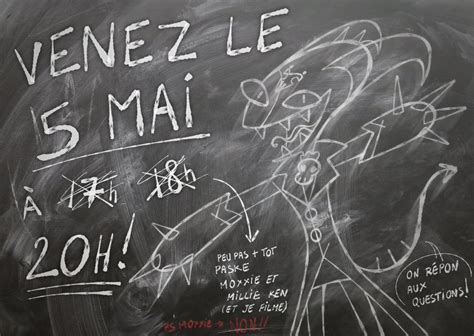 VENEZ LE
5 MAI
À 17h 18h
20H!
PEU PAS + TOT
PASKE
MOXXIE ET
MILLIE KEN
(ET JE FILME)
MOXXIE → NON!!
ON RÉPON
AUX
QUESTIONS!